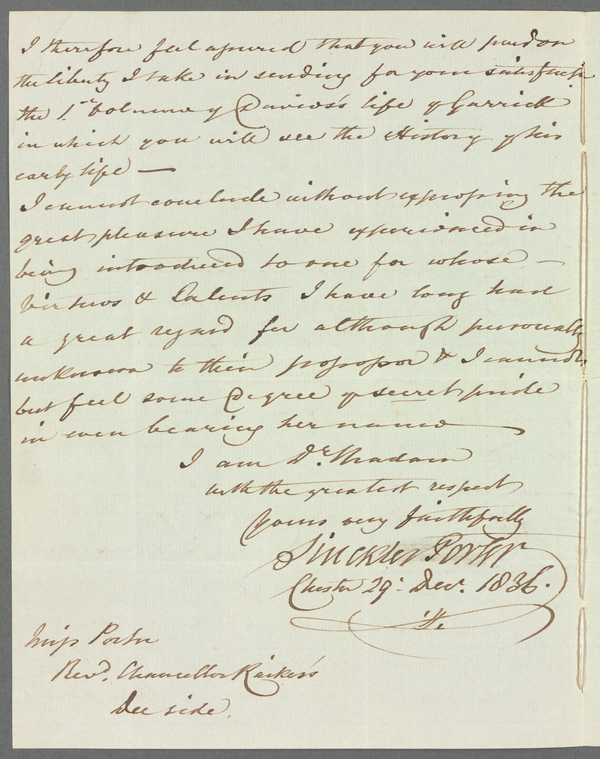 I therefore feel assured that you will pardon
the liberty I take in sending for your satisfactn
the 1st Volume of Davies's life of Garrick
in which you will see the History of his
early life —
I cannot conclude without expressing the
great pleasure I have experienced in
being introduced to one for whose —
Virtues & Talents I have long had
a great regard for although personally
unknown to their possessor & I cannot
but feel some Degree of secret pride
in even bearing her name
I am Dr. Madam
with the greatest respect
Yours very faithfully
Sinckler Porter
Chester 29: Decr. 1836.
Miss Porter
Revd. Chancellor Raikes's
Dee side.